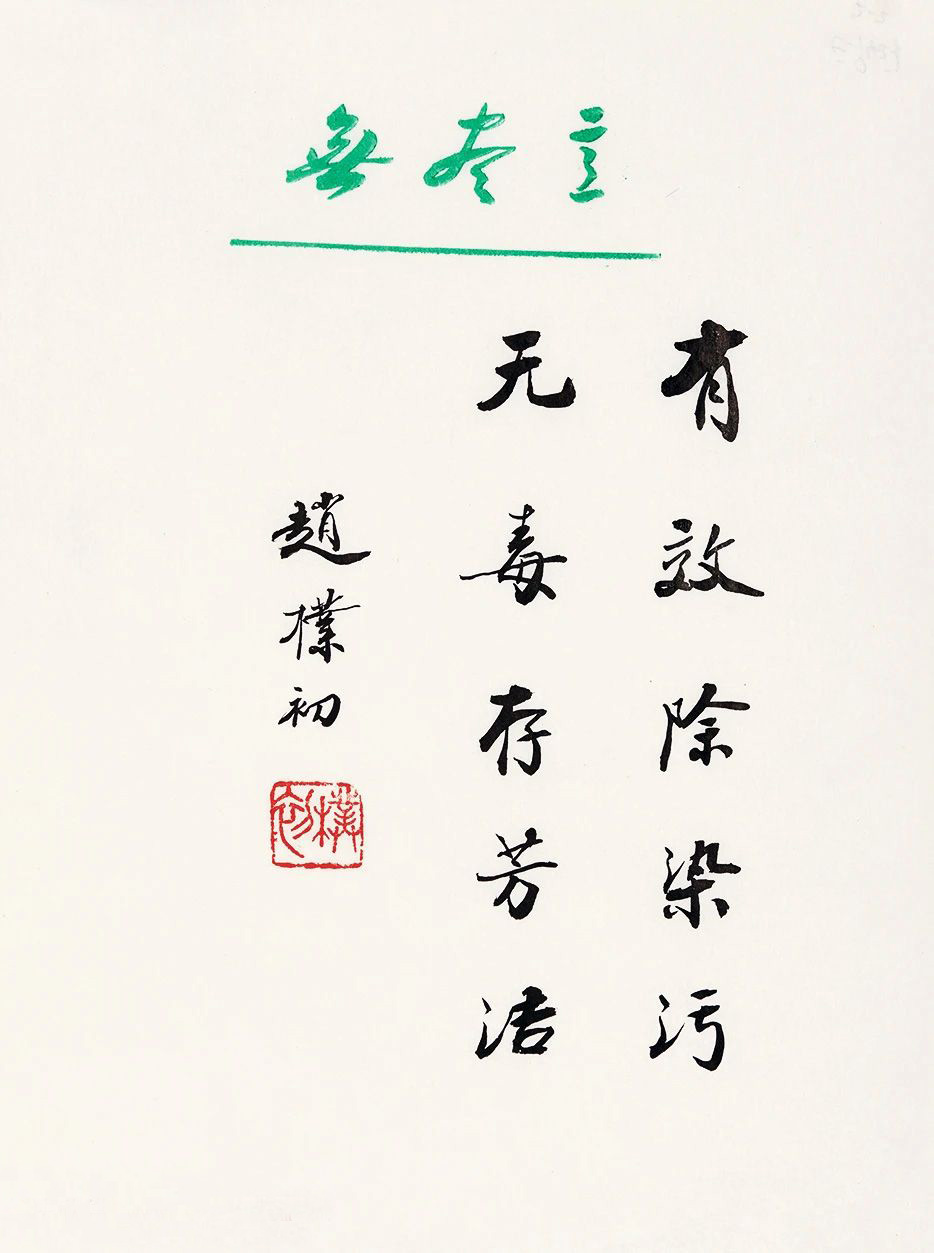 無尽意
有效除染污
无毒存芳洁
趙樸初
樸初